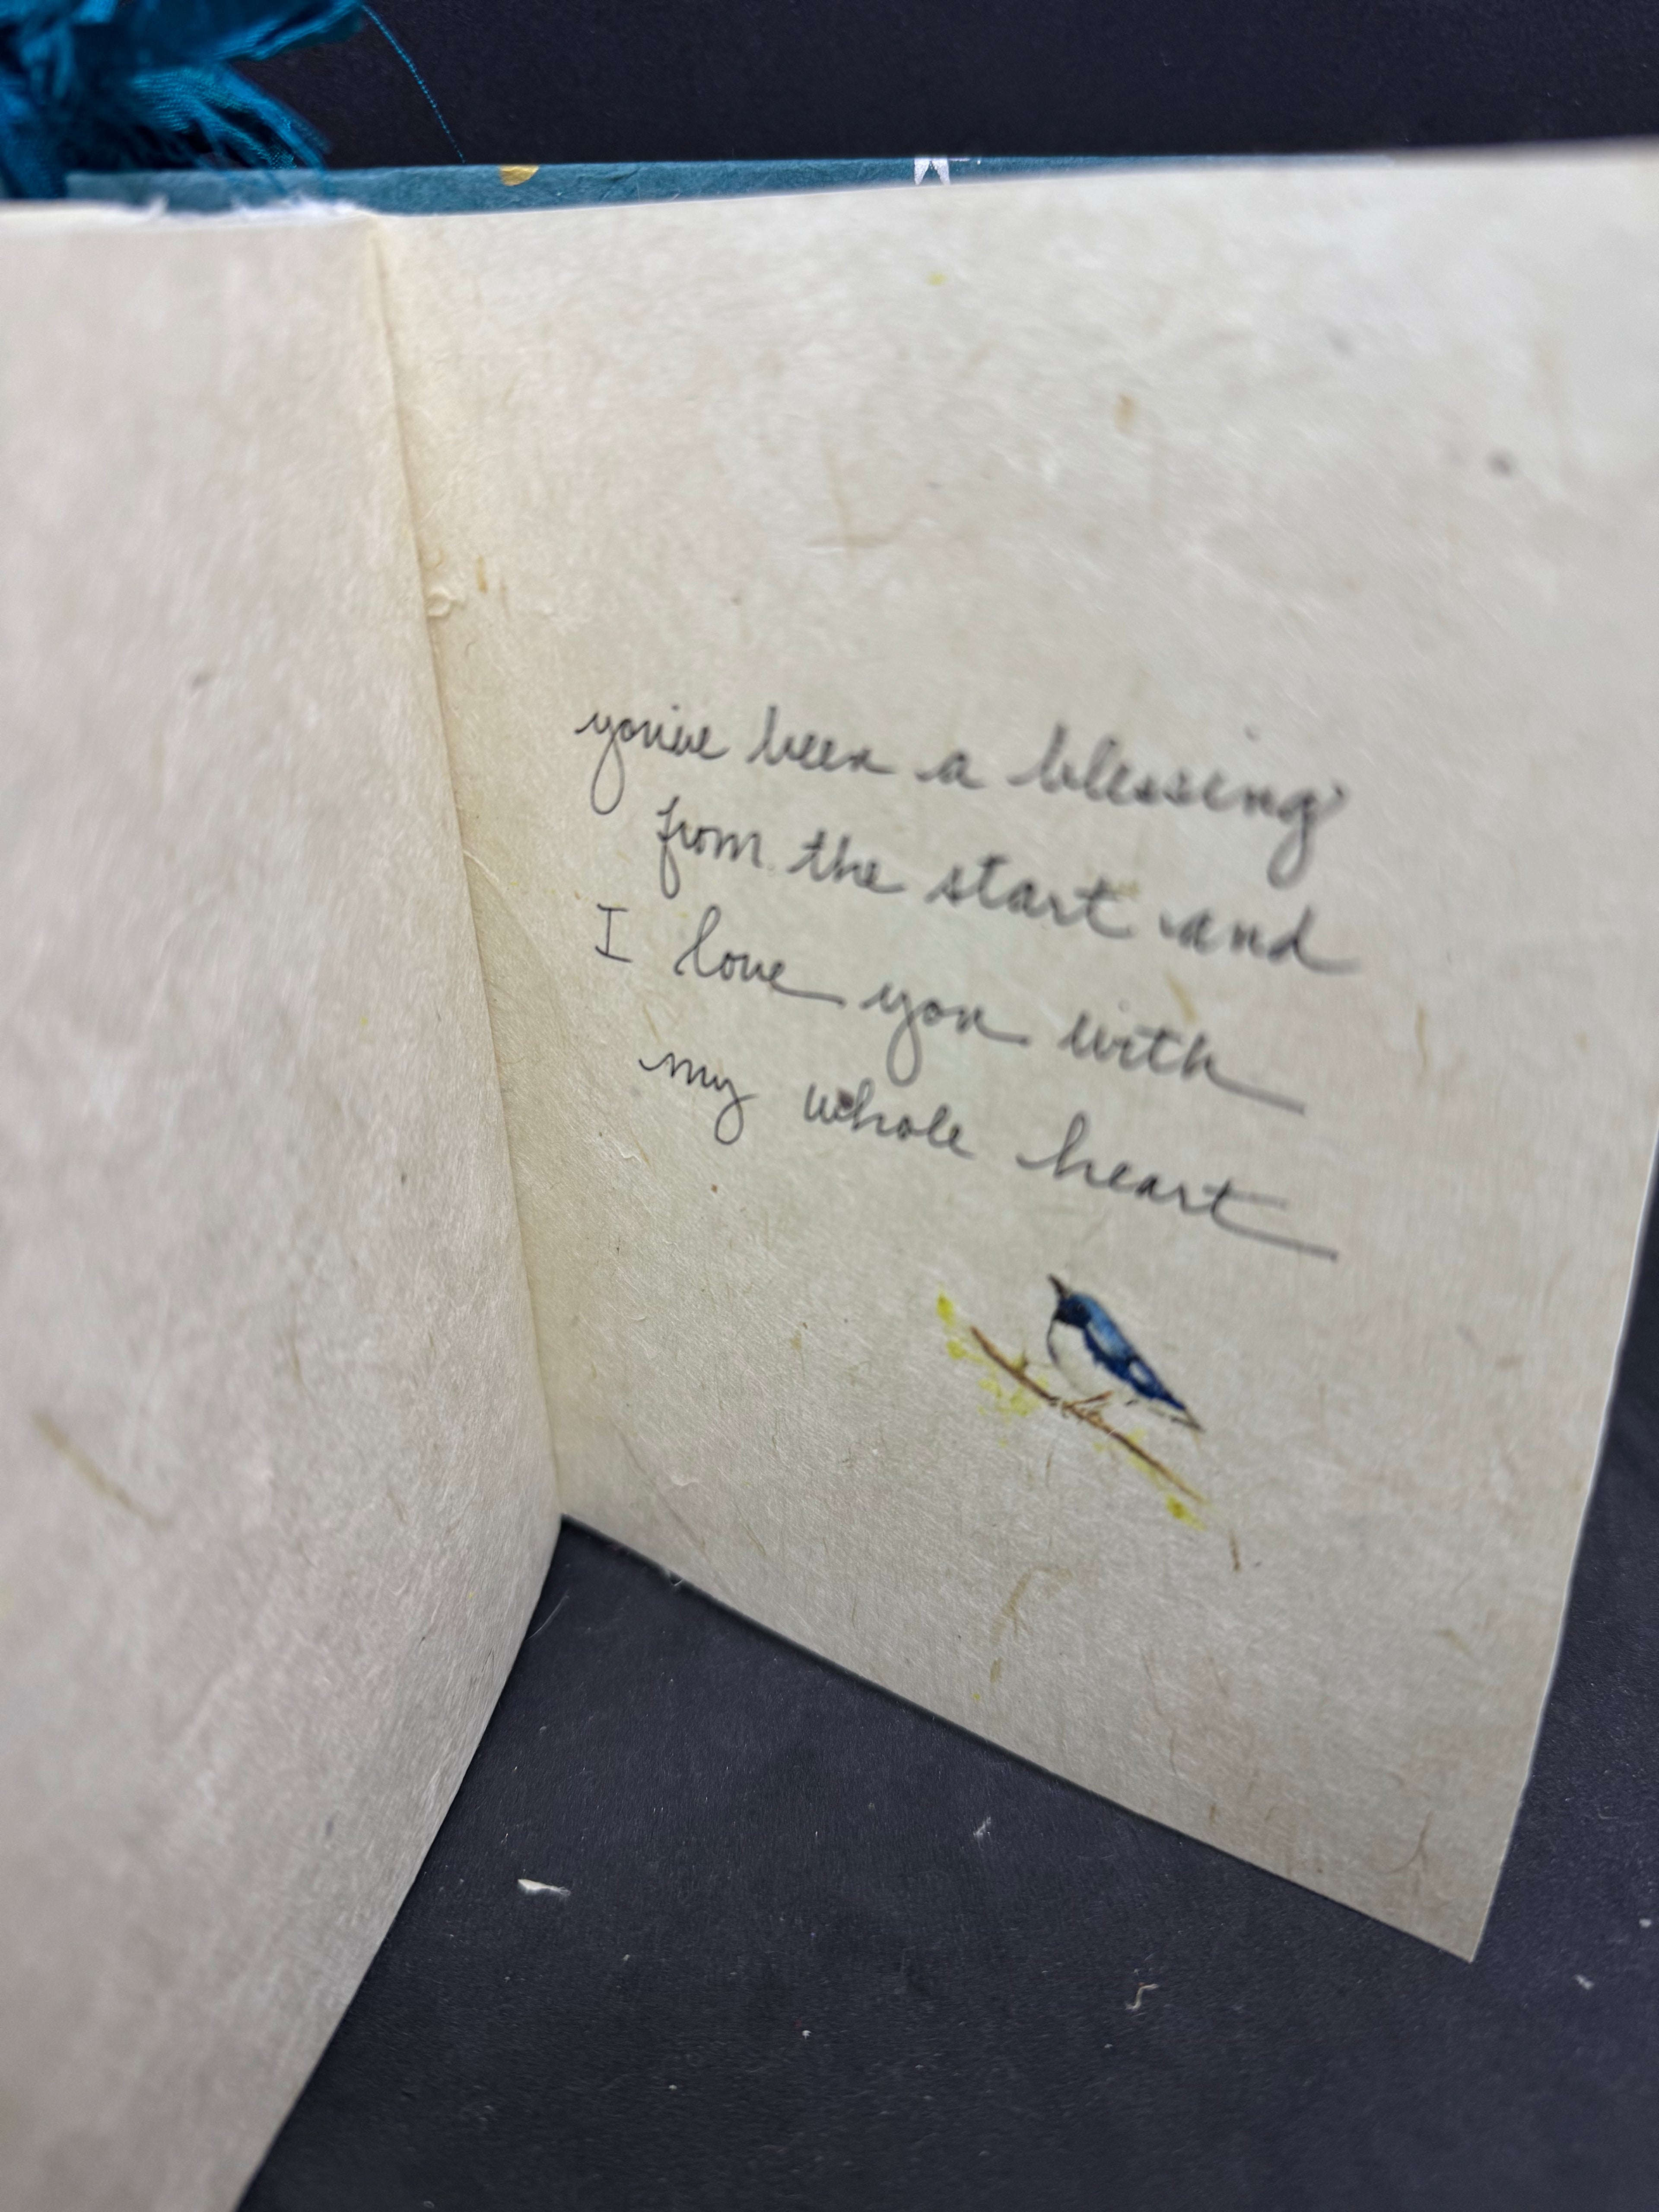 you've been a blessing
from the start and
I love you with
my whole heart